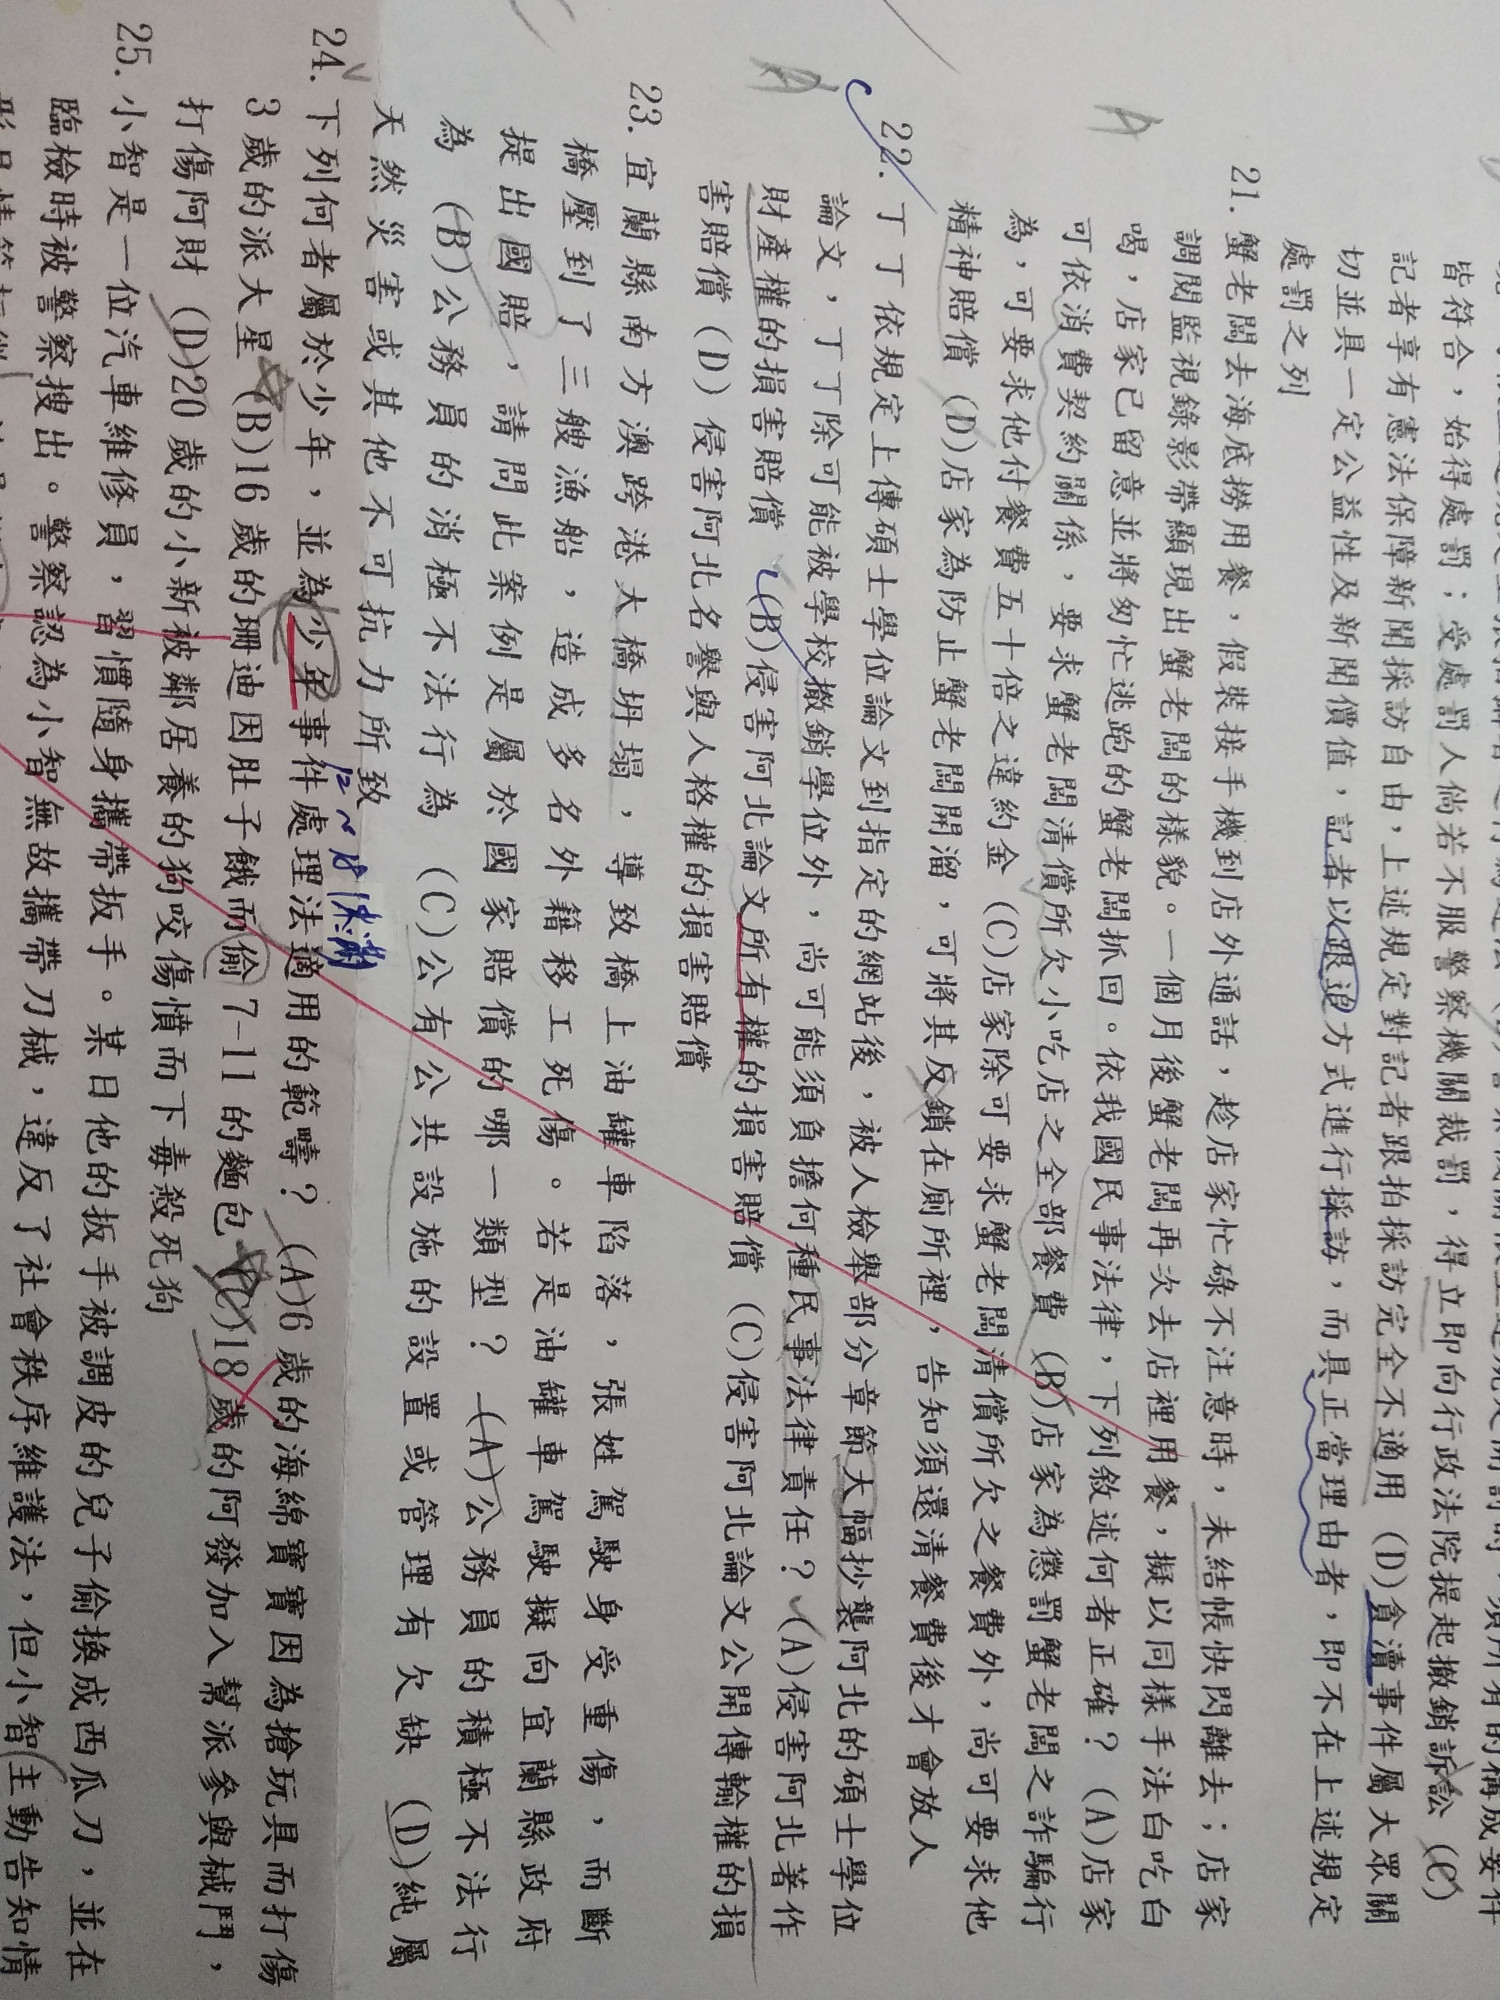 皆符合，始得處罰；受處罰人倘若不服警察機關裁罰，得立即向行政法院提起撤銷訴訟 (C)
記者享有憲法保障新聞採訪自由，上述規定對記者跟拍採訪完全不適用 (D)貪瀆事件屬大眾關
切並具一定公益性及新聞價值，記者以跟追方式進行採訪，而具正當理由者，即不在上述規定
處罰之列
21. 蟹老闆去海底撈用餐，假裝接手機到店外通話，趁店家忙碌不注意時，未結帳快閃離去；店家
調閱監視錄影帶顯現出蟹老闆的樣貌。一個月後蟹老闆再次去店裡用餐，擬以同樣手法白吃白
喝，店家已留意並將匆忙逃跑的蟹老闆抓回。依我國民事法律，下列敘述何者正確？ (A)店家
可依消費契約關係，要求蟹老闆清償所欠小吃店之全部餐費 (B)店家為懲罰蟹老闆之詐騙行
為，可要求他付餐費五十倍之違約金 (C)店家除可要求蟹老闆清償所欠之餐費外，尚可要求他
精神賠償 (D)店家為防止蟹老闆開溜，可將其反鎖在廁所裡，告知須還清餐費後才會放人
A
22. 丁丁依規定上傳碩士學位論文到指定的網站後，被人檢舉部分章節大幅抄襲阿北的碩士學位
論文，丁丁除可能被學校撤銷學位外，尚可能須負擔何種民事法律責任？ (A)侵害阿北著作
財產權的損害賠償 (B)侵害阿北論文所有權的損害賠償 (C)侵害阿北論文公開傳輸權的損
害賠償 (D) 侵害阿北名譽與人格權的損害賠償
A
23. 宜蘭縣南方澳跨港大橋坍塌，導致橋上油罐車陷落，張姓駕駛身受重傷，而斷
橋壓到了三艘漁船，造成多名外籍移工死傷。若是油罐車駕駛擬向宜蘭縣政府
提出國賠，請問此案例是屬於國家賠償的哪一類型？ (A)公務員的積極不法行
為 (B)公務員的消極不法行為 (C)公有公共設施的設置或管理有欠缺 (D)純屬
天然災害或其他不可抗力所致
12~18
24. 下列何者屬於少年，並為少年事件處理法適用的範疇？ (A)6歲的海綿寶寶因為搶玩具而打傷
3歲的派大星 (B)16歲的珊迪因肚子餓而偷7-11的麵包 (C)18歲的阿發加入幫派參與械鬥，
打傷阿財 (D)20歲的小新被鄰居養的狗咬傷憤而下毒殺死狗
25. 小智是一位汽車維修員，習慣隨身攜帶扳手。某日他的扳手被調皮的兒子偷換成西瓜刀，並在
臨檢時被警察搜出。警察認為小智無故攜帶刀械，違反了社會秩序維護法，但小智主動告知情